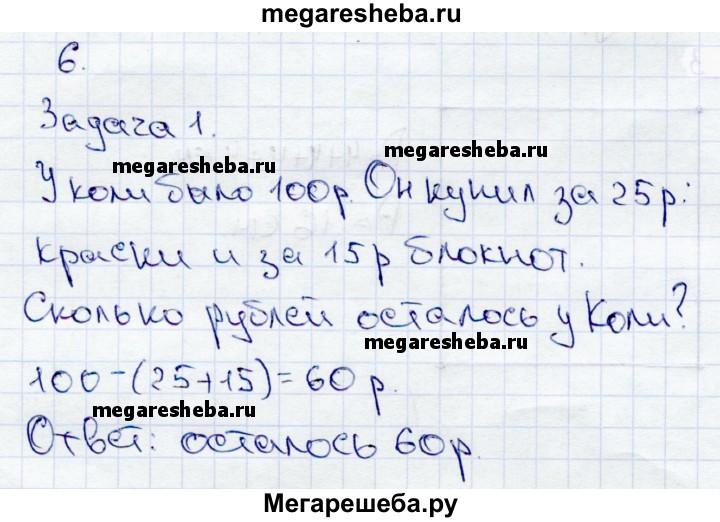 megaresheba.ru
6.
Задача 1.
megaresheba.ru
megaresheba.ru
У коли было 100р. Он купил за 25р:
краски и за 15р блокнот.
Сколько рублей осталось у Коли?
megaresheba.ru
100-(25+15)=60р.
megaresheba.ru
Ответ: осталось 60р.
Мегарешеба.ру